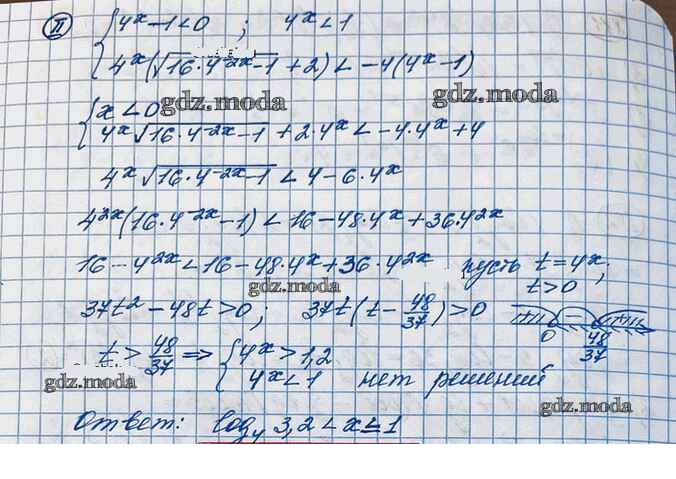 II) { 4ˣ - 1 < 0 ; 4ˣ < 1
4ˣ(√16·4⁻²ˣ-1 + 2) < -4(4ˣ-1)
gdz.moda gdz.moda
{ x < 0
4ˣ√16·4⁻²ˣ-1 + 2·4ˣ < -4·4ˣ + 4
4ˣ√16·4⁻²ˣ-1 < 4 - 6·4ˣ
4²ˣ(16·4⁻²ˣ-1) < 16 - 48·4ˣ + 36·4²ˣ
16 - 4²ˣ < 16 - 48·4ˣ + 36·4²ˣ пусть t = 4ˣ;
t > 0
gdz.moda
37t² - 48t > 0; 37t(t - 48/37) > 0
0 48/37
t > 48/37 => { 4ˣ > 1,2
4ˣ < 1 нет решений
gdz.moda
gdz.moda
Ответ: log₄ 3,2 < x ≤ 1